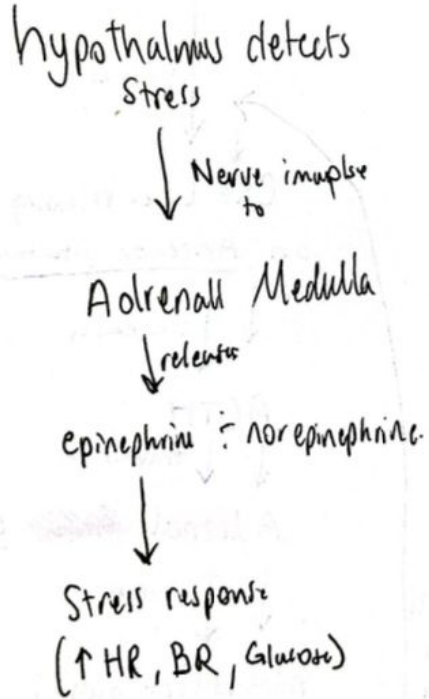 hypothalmus detects
Stress
Nerve imuplse
to
Adrenall Medulla
releases
epinephrine ÷ norepinephrine.
Stress response
(↑ HR, BR, Glucose)